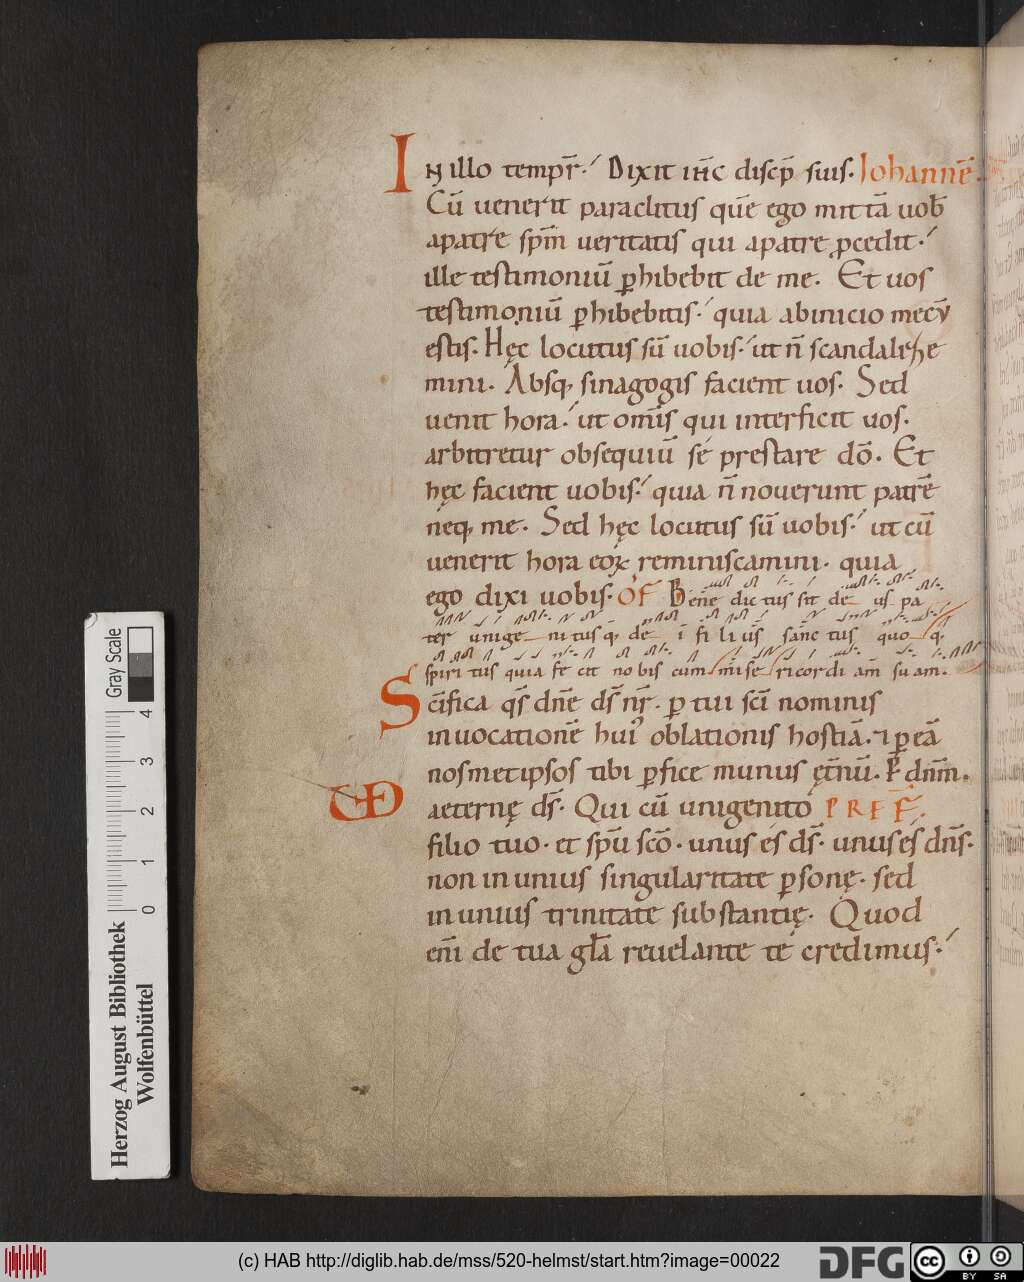 In illo tempr̄. Dixit ih̄c discp̄ suis. Iohannē.
Cū uenerit paraclitus quē ego mittā uob̄
apatre sp̄m ueritatis qui apatre ꝓcedit.
ille testimoniū ꝑhibebit de me. Et uos
testimoniū ꝑhibebitis. quia abinicio mecū
estis. Hęc locutus sū uobis. ut n̄ scandalize
mini. Absq; sinagogis facient uos. Sed
uenit hora. ut om̄is qui interficit uos.
arbitretur obsequiū se prestare dō. Et
hęc facient uobis. quia n̄ nouerunt patrē
neq; me. Sed hęc locutus sū uobis. ut cū
uenerit hora eoꝝ reminiscamini. quia
ego dixi uobis. OF Bene dic tus sit de us pa
ter unige ni tus q; de i fi li us sanc tus quo q;
spiri tus quia fe cit no bis cum mi se ricor di am su am.
Scīfica qs̄ dn̄e ds̄ nr̄. ꝑ tui scī nominis
inuocationē hui᾽ oblationis hostiā. ⁊ ꝑ eā
nosmetipsos tibi ꝑfice munus ęt̄nū. P dn̄m.
UD aeternę ds̄. Qui cū unigenito PREF.
filio tuo. et sp̄u scō. unus es ds̄. unus es dn̄s.
non in unius singularitate ꝑsonę. sed
in unius trinitate substantię. Quod
enī de tua gl̄a reuelante te credimus.
Gray Scale
4
3
2
1
0
Herzog August Bibliothek
Wolfenbüttel
(c) HAB http://diglib.hab.de/mss/520-helmst/start.htm?image=00022
DFG
cc
BY SA